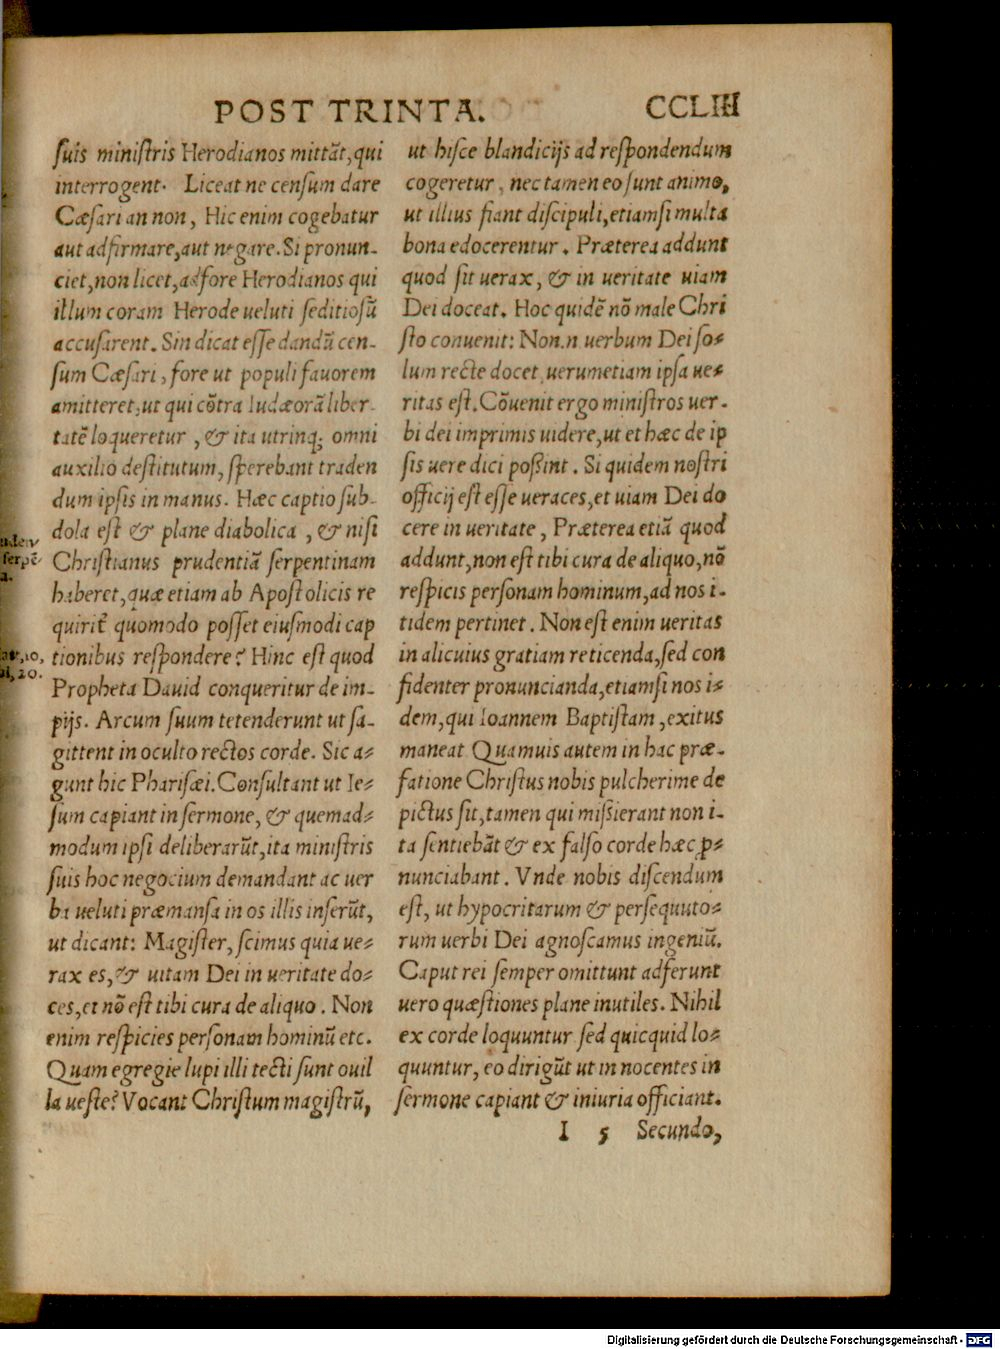 POST TRINTA.
CCLIII
ſuis miniſtris Herodianos mittāt, qui
interrogent. Liceat ne cenſum dare
Cæſari an non, Hic enim cogebatur
aut adfirmare, aut negare. Si pronun-
ciet, non licet, adfore Herodianos qui
illum coram Herode ueluti ſeditioſū
accuſarent. Sin dicat eſſe dandū cen-
ſum Cæſari, fore ut populi fauorem
amitteret, ut qui cōtra Iudæorā liber-
tatē loqueretur, & ita utrinq; omni
auxilio deſtitutum, ſperebant traden
dum ipſis in manus. Hæc captio ſub-
dola eſt & plane diabolica, & niſi
Chriſtianus prudentiā ſerpentinam
haberet, quæ etiam ab Apoſtolicis re
quirit̄ quomodo poſſet eiuſmodi cap
tionibus reſpondere? Hinc eſt quod
Propheta Dauid conqueritur de im-
pijs. Arcum ſuum tetenderunt ut ſa-
gittent in oculto rectos corde. Sic a-
gunt hic Phariſæi. Conſultant ut Ie-
ſum capiant in ſermone, & quemad-
modum ipſi deliberarūt, ita miniſtris
ſuis hoc negocium demandant ac uer
ba ueluti præmanſa in os illis inſerūt,
ut dicant: Magiſter, ſcimus quia ue-
rax es, & uitam Dei in ueritate do-
ces, et nō eſt tibi cura de aliquo. Non
enim reſpicies perſonam hominū etc.
Quam egregie lupi illi tecti ſunt ouil
la ueſte? Vocant Chriſtum magiſtrū,
ſerpē
10,
20.
ut hiſce blandicijs ad reſpondendum
cogeretur, nec tamen eo ſunt animo,
ut illius fiant diſcipuli, etiamſi multa
bona edocerentur. Præterea addunt
quod ſit uerax, & in ueritate uiam
Dei doceat. Hoc quidē nō male Chri
ſto conuenit: Non.n uerbum Dei ſo-
lum recte docet, uerumetiam ipſa ue-
ritas eſt. Cōuenit ergo miniſtros uer-
bi dei imprimis uidere, ut et hæc de ip
ſis uere dici poſſint. Si quidem noſtri
officij eſt eſſe ueraces, et uiam Dei do
cere in ueritate, Præterea etiā quod
addunt, non eſt tibi cura de aliquo, nō
reſpicis perſonam hominum, ad nos i-
tidem pertinet. Non eſt enim ueritas
in alicuius gratiam reticenda, ſed con
fidenter pronuncianda, etiamſi nos i-
dem, qui Ioannem Baptiſtam, exitus
maneat Quamuis autem in hac præ-
fatione Chriſtus nobis pulcherime de
pictus ſit, tamen qui miſſierant non i-
ta ſentiebāt & ex falſo corde hæc ꝓ-
nunciabant. Vnde nobis diſcendum
eſt, ut hypocritarum & perſequuto-
rum uerbi Dei agnoſcamus ingeniū.
Caput rei ſemper omittunt adferunt
uero quæſtiones plane inutiles. Nihil
ex corde loquuntur ſed quicquid lo-
quuntur, eo dirigūt ut in nocentes in
ſermone capiant & iniuria officiant.
I 5 Secundo,
Digitalisierung gefördert durch die Deutsche Forschungsgemeinschaft - DFG